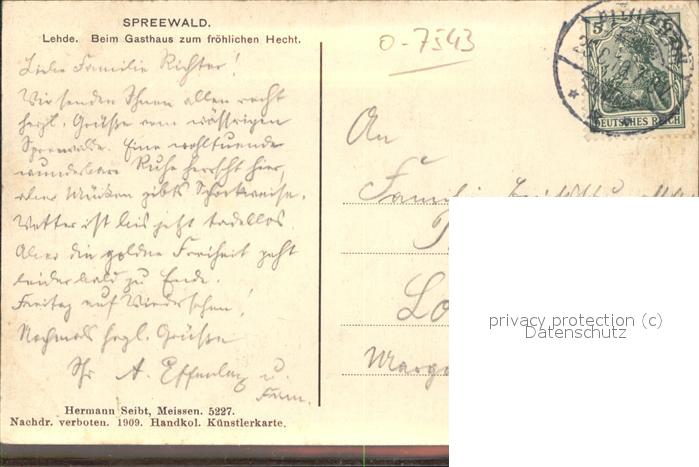 SPREEWALD.
Lehde. Beim Gasthaus zum fröhlichen Hecht.
0-7543
5
DEUTSCHES REICH
Liebe Familie Richter!
Wir senden Ihnen allen recht
herzl. Grüße vom wässrigen
Spreewalde. Eine wohltuende
wunderbare Ruhe herrscht hier,
aber Mücken gibts Schockweise.
Wetter ist bis jetzt tadellos.
Aber die goldne Freiheit geht
leider bald zu Ende.
Freitag auf Wiedersehen!
Nochmals herzl. Grüße
Ihr A. u.
Fam.
An
Familie
privacy protection (c)
Datenschutz
Hermann Seibt, Meissen. 5227.
Nachdr. verboten. 1909. Handkol. Künstlerkarte.